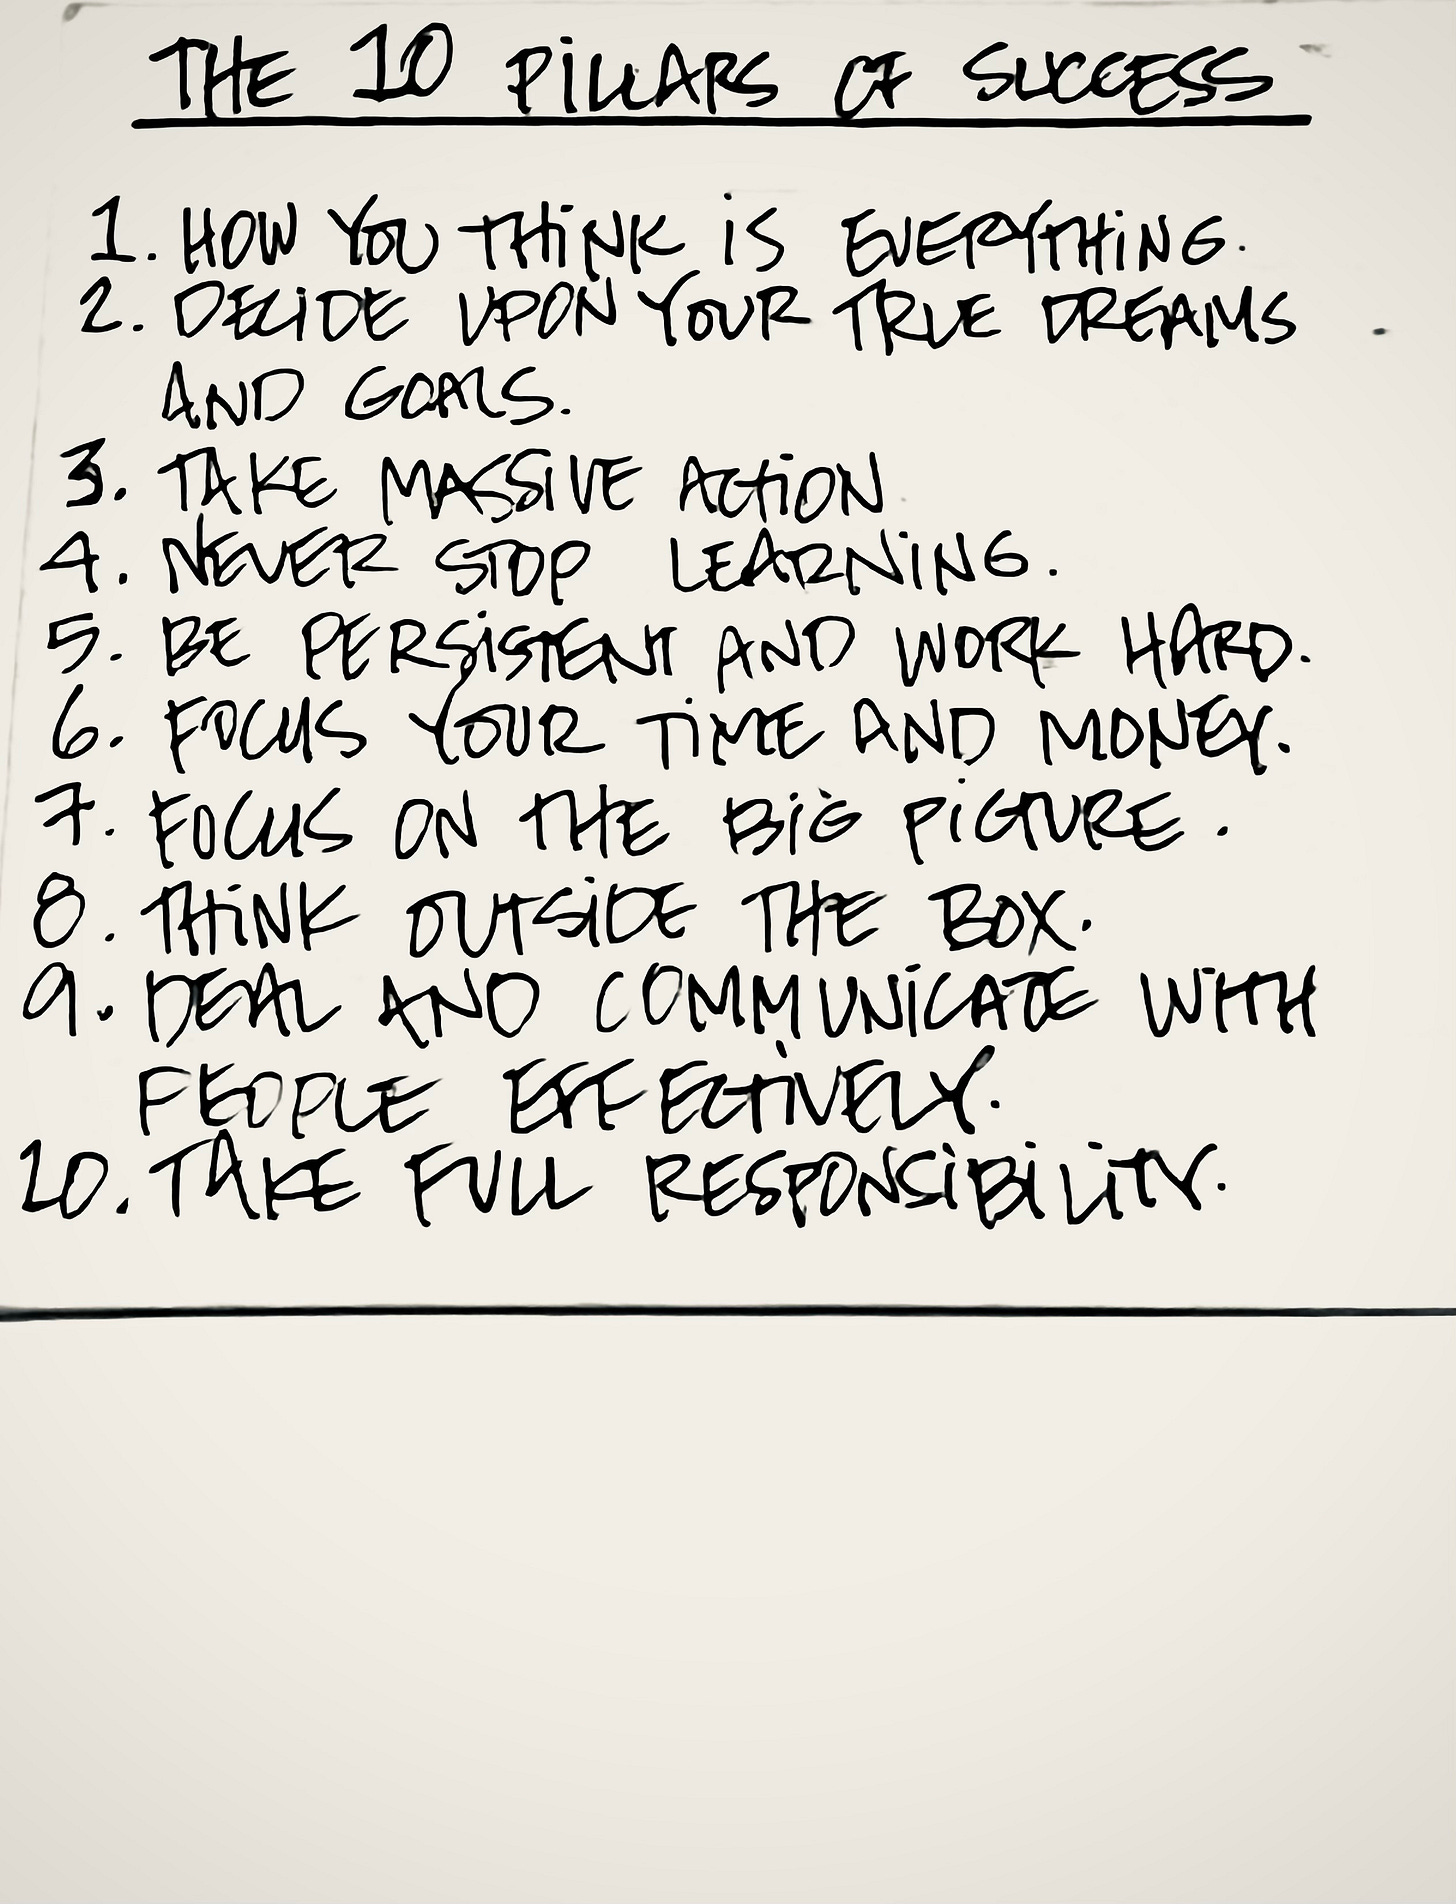 THE 10 PILLARS OF SUCCESS
1. HOW YOU THINK IS EVERYTHING.
2. DECIDE UPON YOUR TRUE DREAMS
AND GOALS.
3. TAKE MASSIVE ACTION
4. NEVER STOP LEARNING.
5. BE PERSISTENT AND WORK HARD.
6. FOCUS YOUR TIME AND MONEY.
7. FOCUS ON THE BIG PICTURE.
8. THINK OUTSIDE THE BOX.
9. DEAL AND COMMUNICATE WITH
PEOPLE EFFECTIVELY.
10. TAKE FULL RESPONSIBILITY.